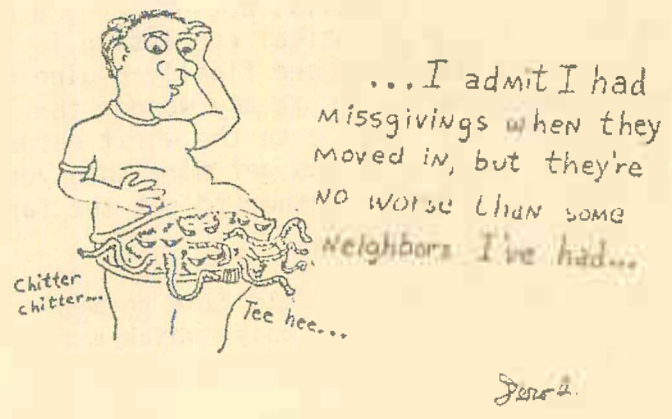 ...I admit I had
missgivings when they
moved in, but they're
no worse than some
neighbors I've had...
Chitter
chitter...
Tee hee...